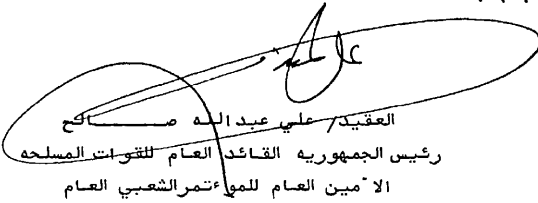 العقيد/ علي عبدالله صـــــــالح
رئيس الجمهوريه القائد العام للقوات المسلحه
الأمين العام للموءتمرالشعبي العام